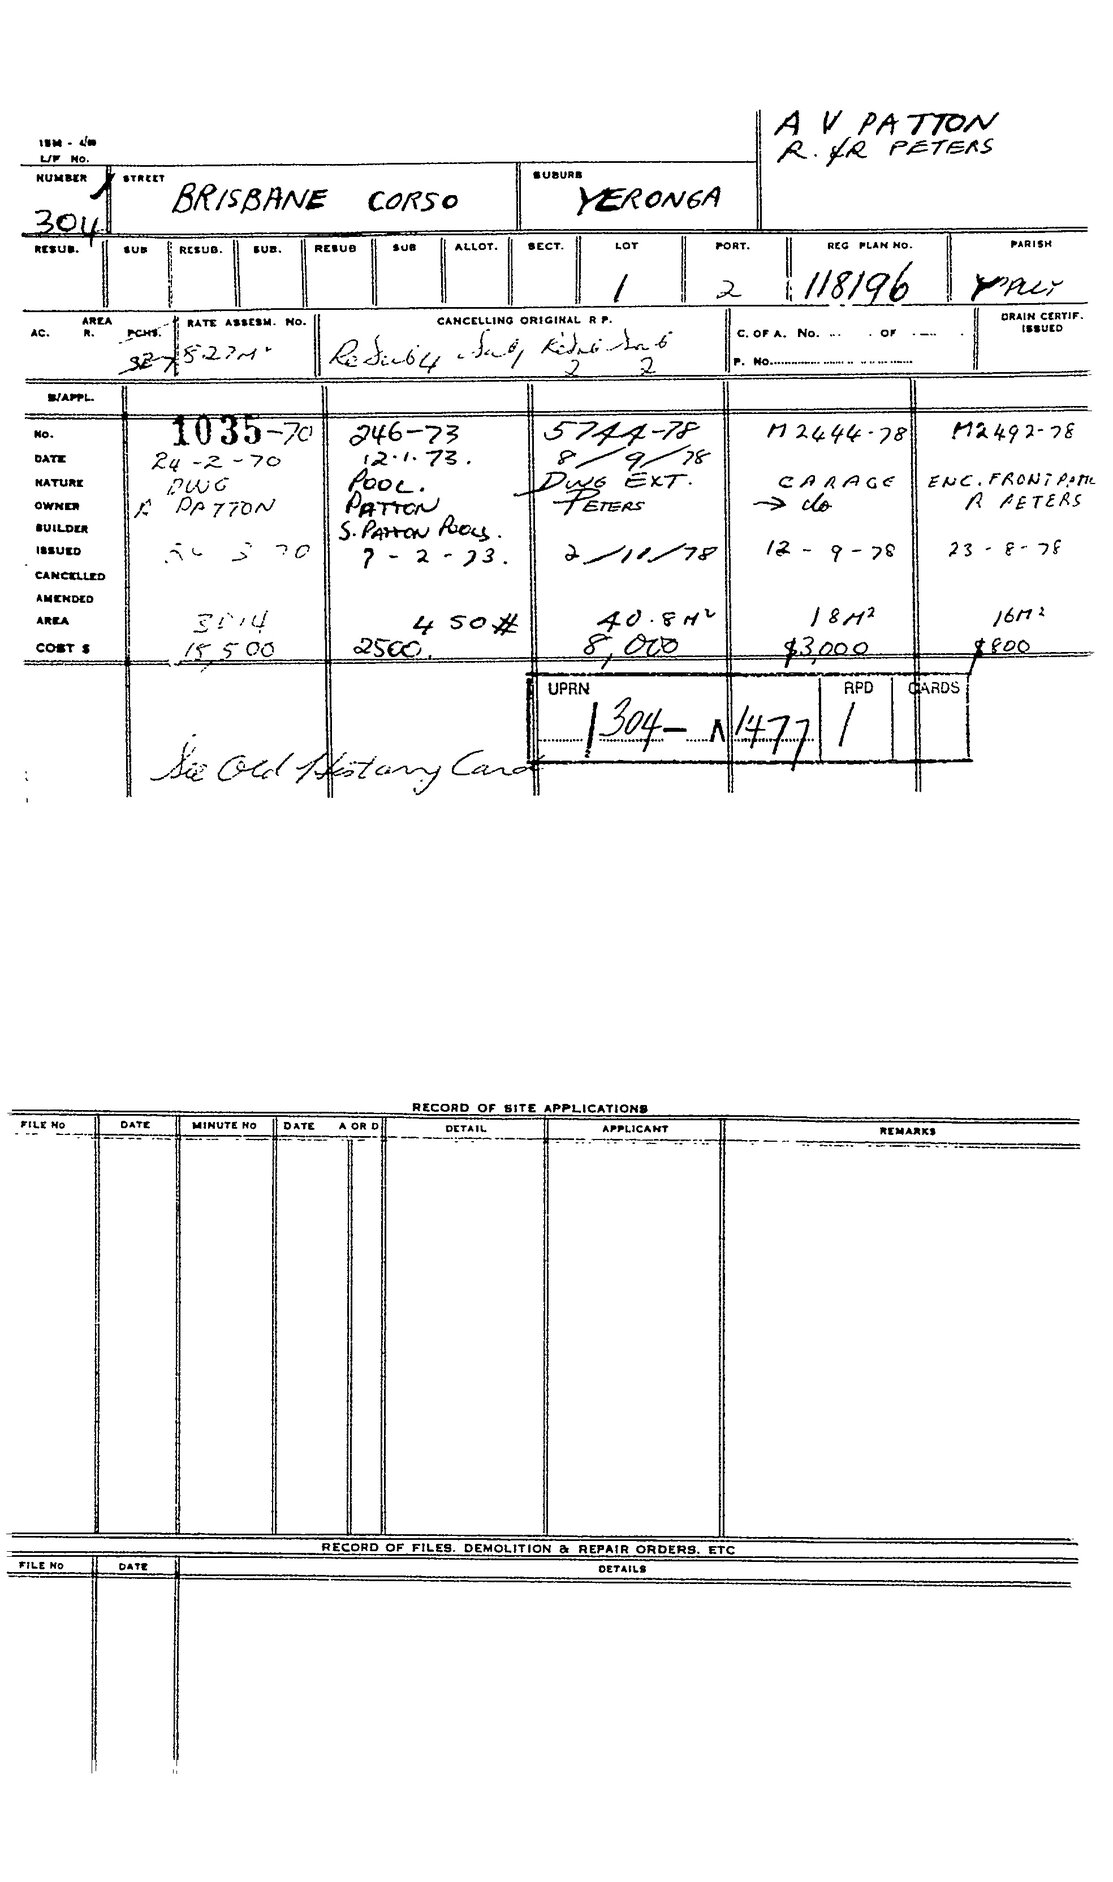 A V PATTON
R. & R PETERS
L/F No.
NUMBER STREET SUBURB
304 BRISBANE CORSO YERONGA
RESUB. SUB RESUB. SUB. RESUB SUB ALLOT. SECT. LOT PORT. REG PLAN NO. PARISH
1 2 118196 Y'PILLY
AREA
AC. R. PCHS. RATE ASSESM. No. CANCELLING ORIGINAL R P. C. OF A. No. OF DRAIN CERTIF. ISSUED
827M² Resub 4
P. No.
B/APPL.
No. 1035-70 246-73 5744-78 M2444-78 M2492-78
DATE 24-2-70 12.1.73. 8/9/78
NATURE DWG POOL. DWG EXT. GARAGE ENC. FRONT PATIO
OWNER PATTON PATTON PETERS → do R PETERS
BUILDER S. PATTON POOLS.
ISSUED 7-2-73. 2/11/78 12-9-78 23-8-78
CANCELLED
AMENDED
AREA 450# 40.8M² 18M² 16M²
COST $ 15,500 2500. 8,000 $3,000 $800
UPRN RPD CARDS
1304- 1477 1
See Old History Card
RECORD OF SITE APPLICATIONS
FILE No DATE MINUTE No DATE A OR D DETAIL APPLICANT REMARKS
RECORD OF FILES. DEMOLITION & REPAIR ORDERS. ETC
FILE No DATE DETAILS